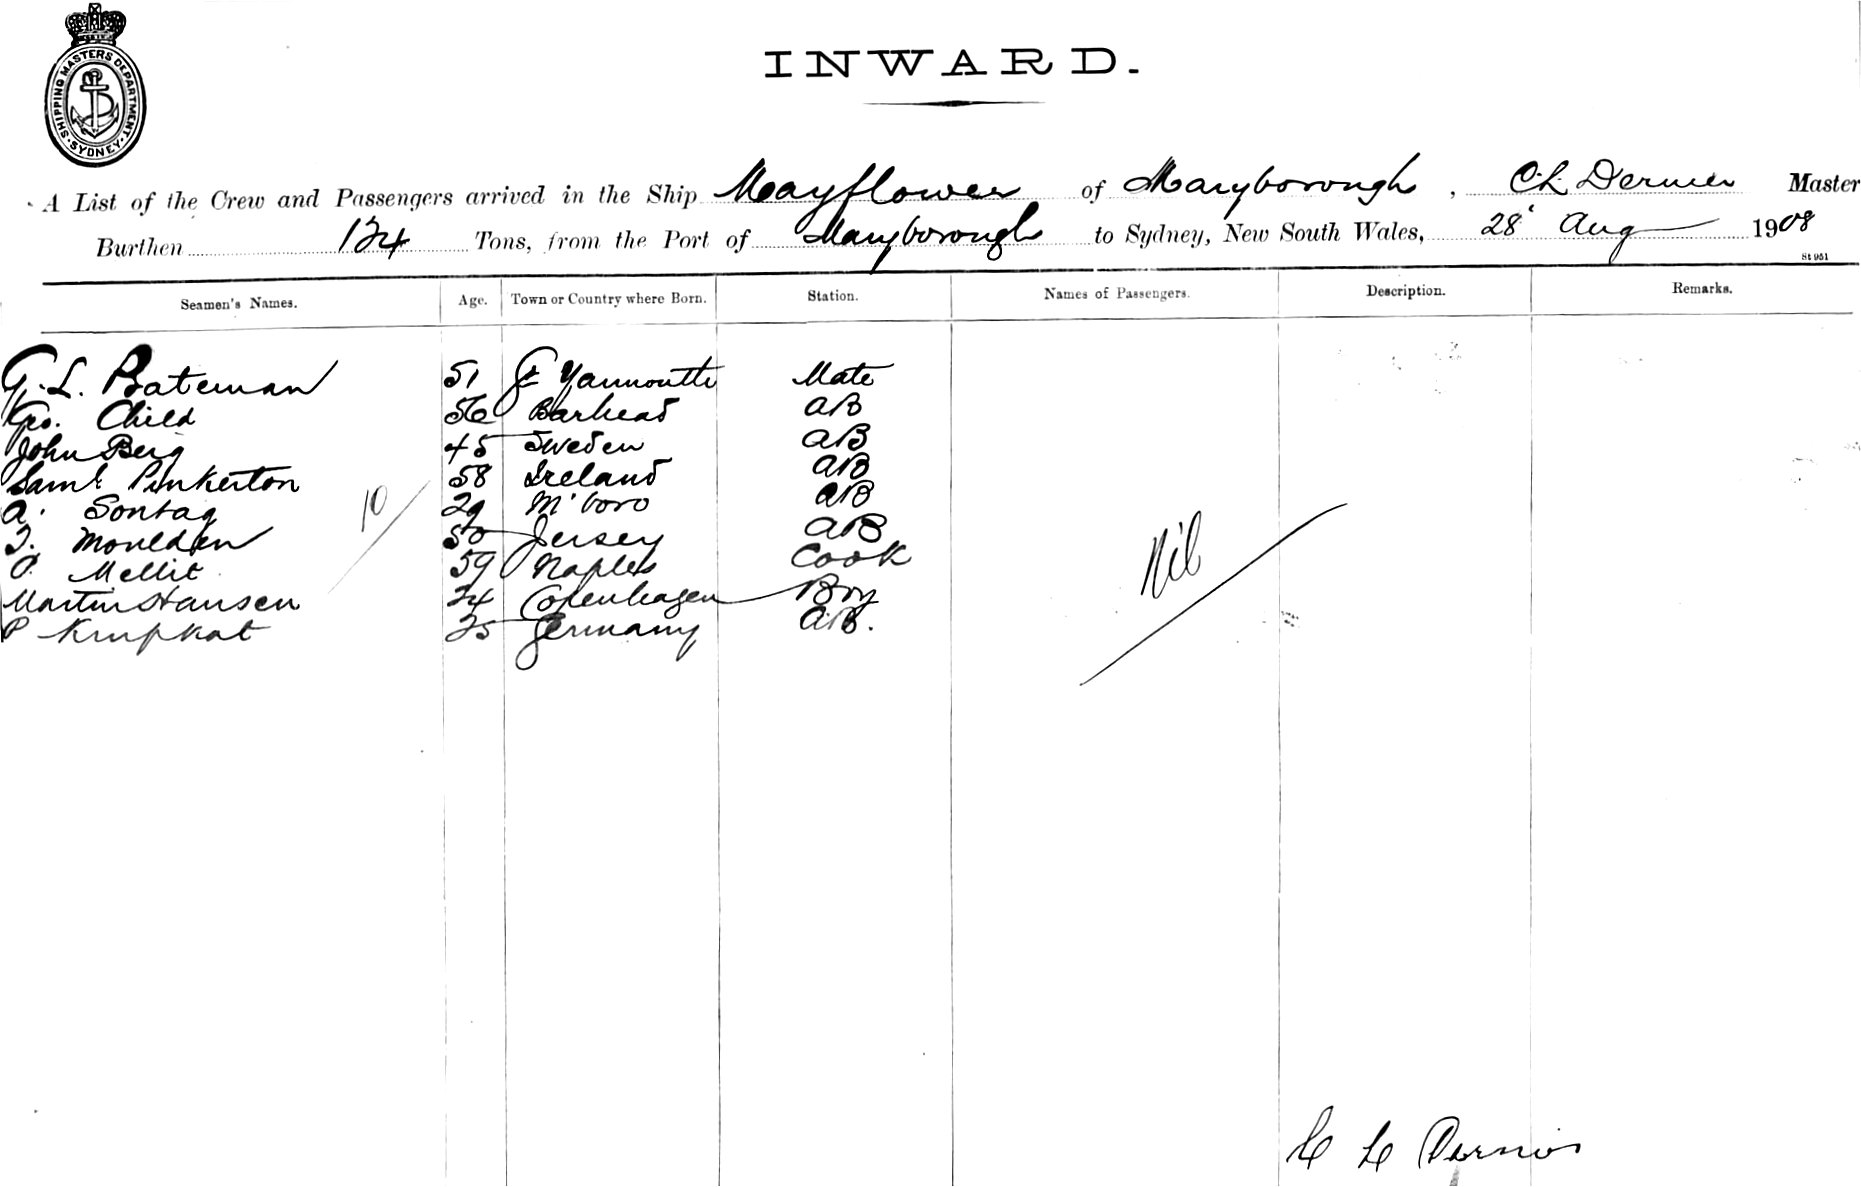 SHIPPING MASTERS DEPARTMENT. SYDNEY
INWARD.
A List of the Crew and Passengers arrived in the Ship Mayflower of Maryborough, C L Dernier Master
Burthen 124 Tons, from the Port of Maryborough to Sydney, New South Wales, 28 Aug 1908
St 951
Seamen's Names. Age. Town or Country where Born. Station. Names of Passengers. Description. Remarks.
G. L. Bateman 51 Gt Yarmouth Mate
Geo. Child 56 Barhead AB
John Berg 45 Sweden AB
Saml Pinkerton 58 Ireland AB
A. Sontag 29 M'boro AB
10
Moulden 50 Jersey AB
Nil
Mellit 59 Naples Cook
Martin Hansen 24 Copenhagen Boy
P Krupkat 25 Germany AB.
C L Dernier